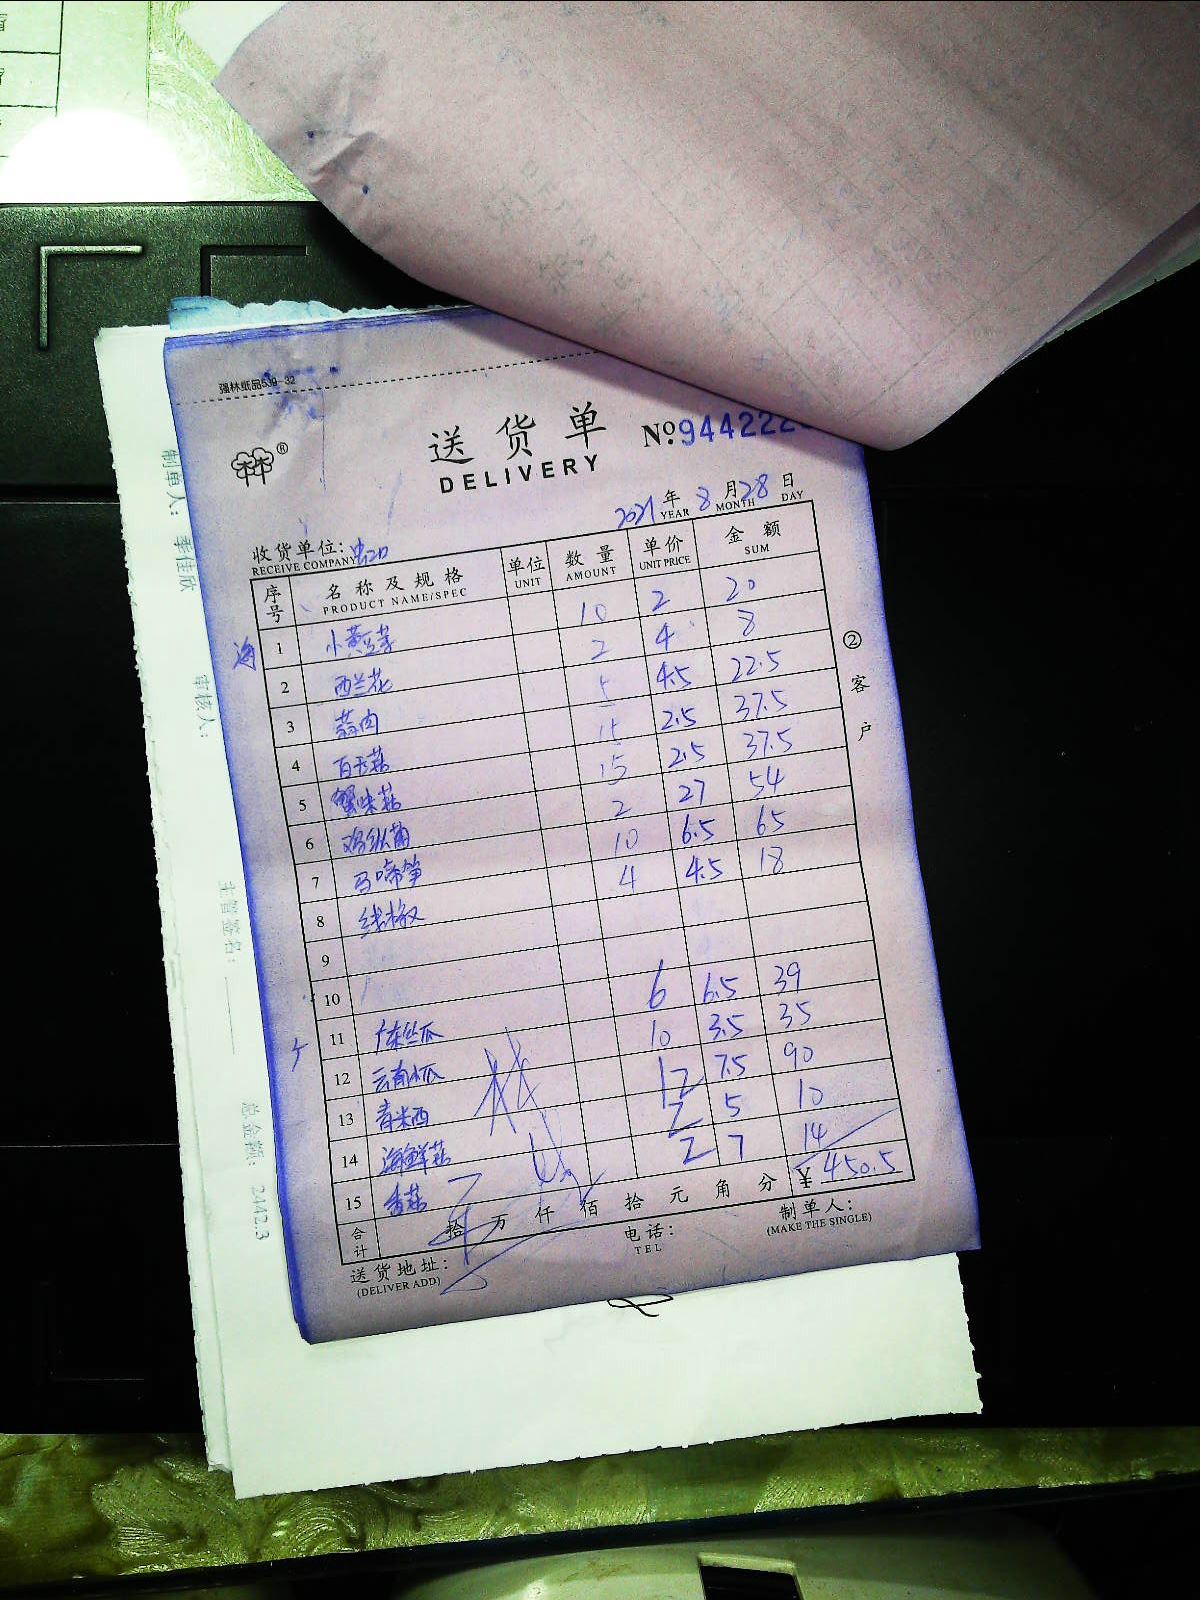 强林纸品539-32
送货单
DELIVERY
№9442222
2021年8月28日
YEAR MONTH DAY
收货单位:虹口
RECEIVE COMPANY
序号 名称及规格 单位 数量 单价 金额
PRODUCT NAME/SPEC UNIT AMOUNT UNIT PRICE SUM
海 1 小黄豆芽 10 2 20
2 西兰花 2 4 8
3 蒜肉 5 4.5 22.5
4 白玉菇 15 2.5 37.5
5 蟹味菇 15 2.5 37.5
6 鸡纵菌 2 27 54
7 马啼笋 10 6.5 65
8 线椒 4 4.5 18
9
10
广 11 广东丝瓜 6 6.5 39
12 云南小瓜 10 3.5 35
13 青米西 12 7.5 90
14 海鲜菇 2 5 10
15 香菇 2 7 14
合计 拾万仟佰拾元角分 ¥450.5
送货地址: 电话: 制单人:
(DELIVER ADD) TEL (MAKE THE SINGLE)
②客户
制单人: 李佳欣
审核人:
主管签名:
总金额: 2442.3